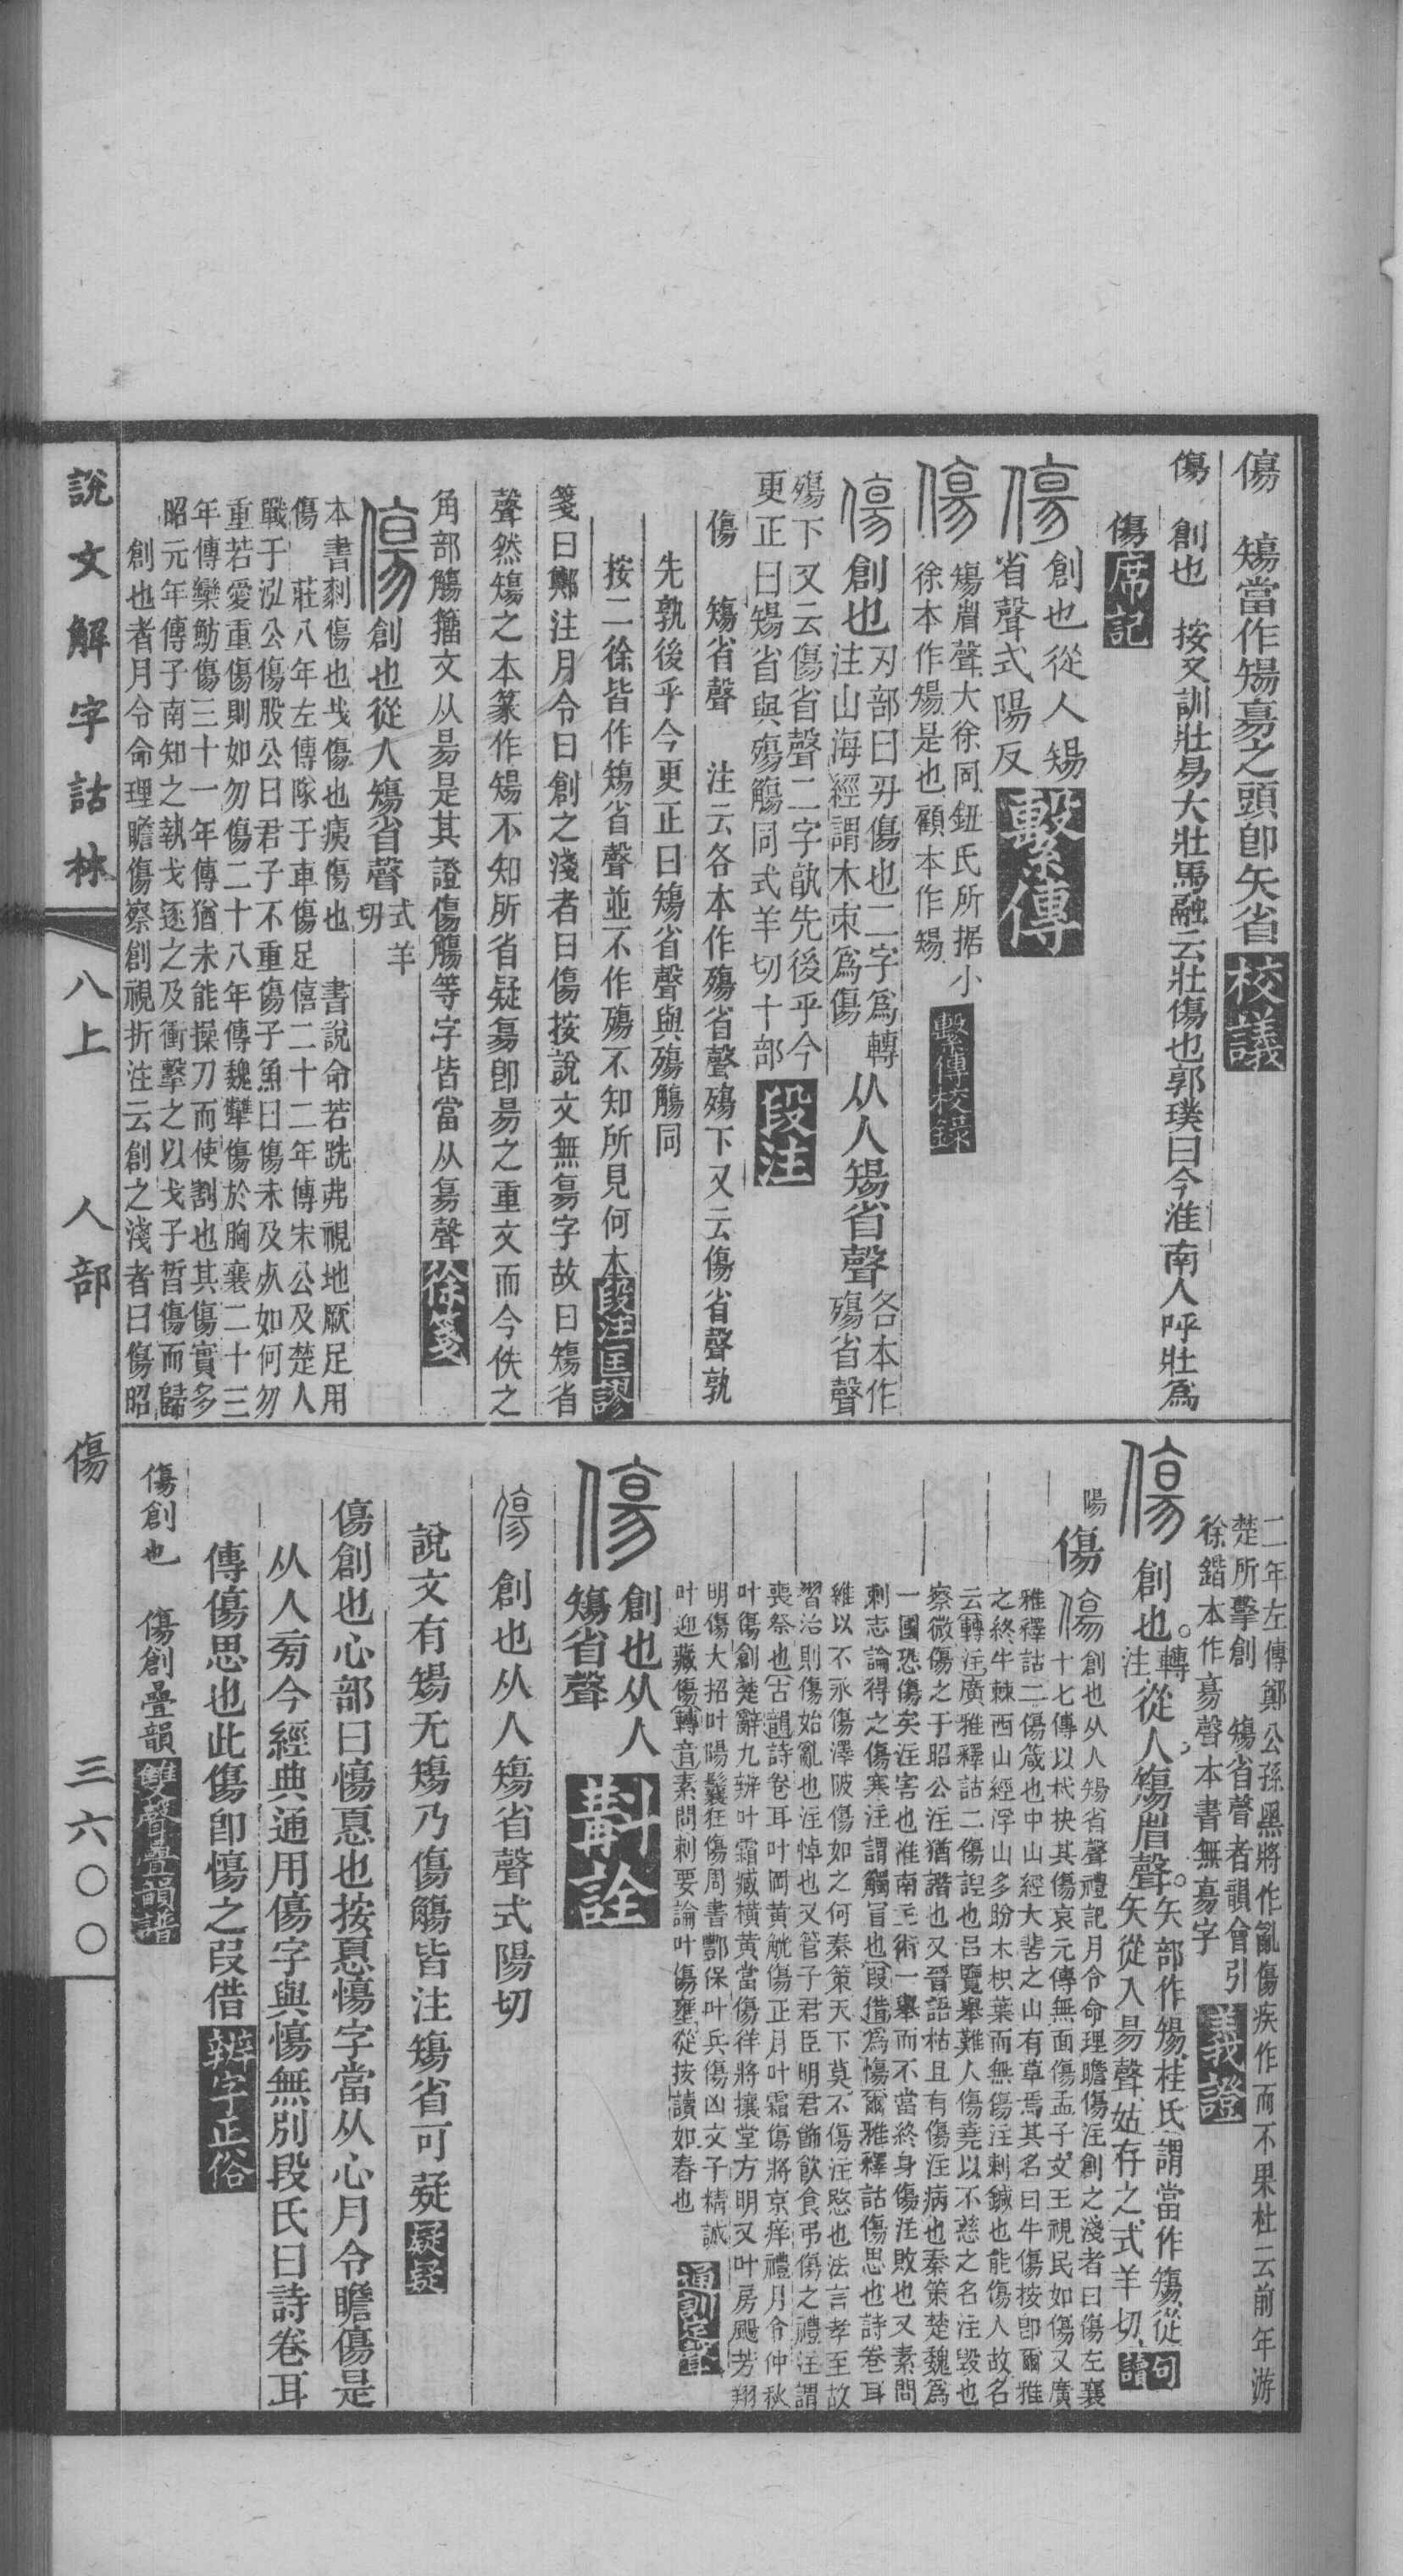 傷　㿽當作𥏻㫊之頭卽矢省校議
傷　創也　按又訓壯易大壯馬融云壯傷也郭璞曰今淮南人呼壯爲
傷席記
傷創也從人𥏻
省聲式陽反繫傳
傷𥏻省聲大徐同鈕氏所据小
徐本作𥏻是也顧本作𥏻繫傳校錄
傷創也刃部曰刅傷也二字爲轉
注山海經謂木朿爲傷从人𥏻省聲各本作
殤省聲
殤下又云傷省聲二字孰先後乎今
更正曰𥏻省與殤觴同式羊切十部段注
傷　𥏻省聲　注云各本作殤省聲殤下又云傷省聲孰
先孰後乎今更正曰𥏻省聲與殤觴同
按二徐皆作𥏻省聲並不作殤不知所見何本段注匡謬
箋曰鄭注月令曰創之淺者曰傷按說文無㫊字故曰𥏻省
聲然𥏻之本篆作𥏻不知所省疑㫊卽昜之重文而今佚之
角部觴籀文从昜是其證傷觴等字皆當从㫊聲徐箋
傷創也從人𥏻省聲式羊
切
本書剺傷也𢦏傷也痍傷也　書說命若跣弗視地厥足用
傷　莊八年左傳隊于車傷足僖二十二年傳宋公及楚人
戰于泓公傷股公曰君子不重傷子魚曰傷未及死如何勿
重若愛重傷則如勿傷二十八年傳魏犫傷於胸襄二十三
年傳欒魴傷三十一年傳猶未能操刀而使割也其傷實多
昭元年傳子南知之執戈逐之及衝擊之以戈子晳傷而歸
創也者月令命理瞻傷察創視折注云創之淺者曰傷昭
二年左傳鄭公孫黑將作亂傷疾作而不果杜云前年游
楚所擊創　𥏻省聲者韻會引
徐鍇本作㫊聲本書無㫊字義證
傷創也。轉
注從人，𥏻省聲。矢部作𥏻桂氏謂當作𥏻從
矢從入昜聲姑存之式羊切句讀
傷傷創也从人𥏻省聲禮記月令命理瞻傷注創之淺者曰傷左襄
十七傳以杙抉其傷哀元傳無面傷孟子文王視民如傷又廣
雅釋詁二傷箴也中山經大𩇯之山有草焉其名曰牛傷按卽爾雅
之終牛棘西山經浮山多盼木枳葉而無傷注刺鍼也能傷人故名
云轉注廣雅釋詁二傷詋也呂覽舉難人傷堯以不慈之名注毀也
察微傷之于昭公注猶譖也又晉語枯且有傷注病也秦策楚魏爲
一國恐傷矣注害也淮南主術一舉而不當終身傷注敗也又素問
刺志論得之傷寒注謂觸冒也叚借爲慯爾雅釋詁傷思也詩卷耳
維以不永傷澤陂傷如之何秦策天下莫不傷注愍也法言孝至故
習治則傷始亂也注悼也又管子君臣明君飾飲食弔傷之禮注謂
喪祭也古韻詩卷耳叶岡黃觥傷正月叶霜傷將京痒禮月令仲秋
叶傷創楚辭九辨叶霜臧橫黃當傷徉將攘堂方明又叶房颺芳翔
明傷大招叶陽鬤狂傷周書酆保叶兵傷凶文子精誠
叶迎藏傷轉音素問刺要論叶傷壅從按讀如舂也通訓定聲
陽
傷創也从人
𥏻省聲斠詮
傷　創也从人𥏻省聲式陽切
說文有𥏻无𥏻乃傷觴皆注𥏻省可疑疑疑
傷創也心部曰慯惪也按惪慯字當从心月令瞻傷是
从人㫄今經典通用傷字與慯無別段氏曰詩卷耳
傳傷思也此傷卽慯之叚借辨字正俗
傷創也　傷創曡韻雙聲曡韻譜
說文解字詁林　八上　人部　傷　三六〇〇